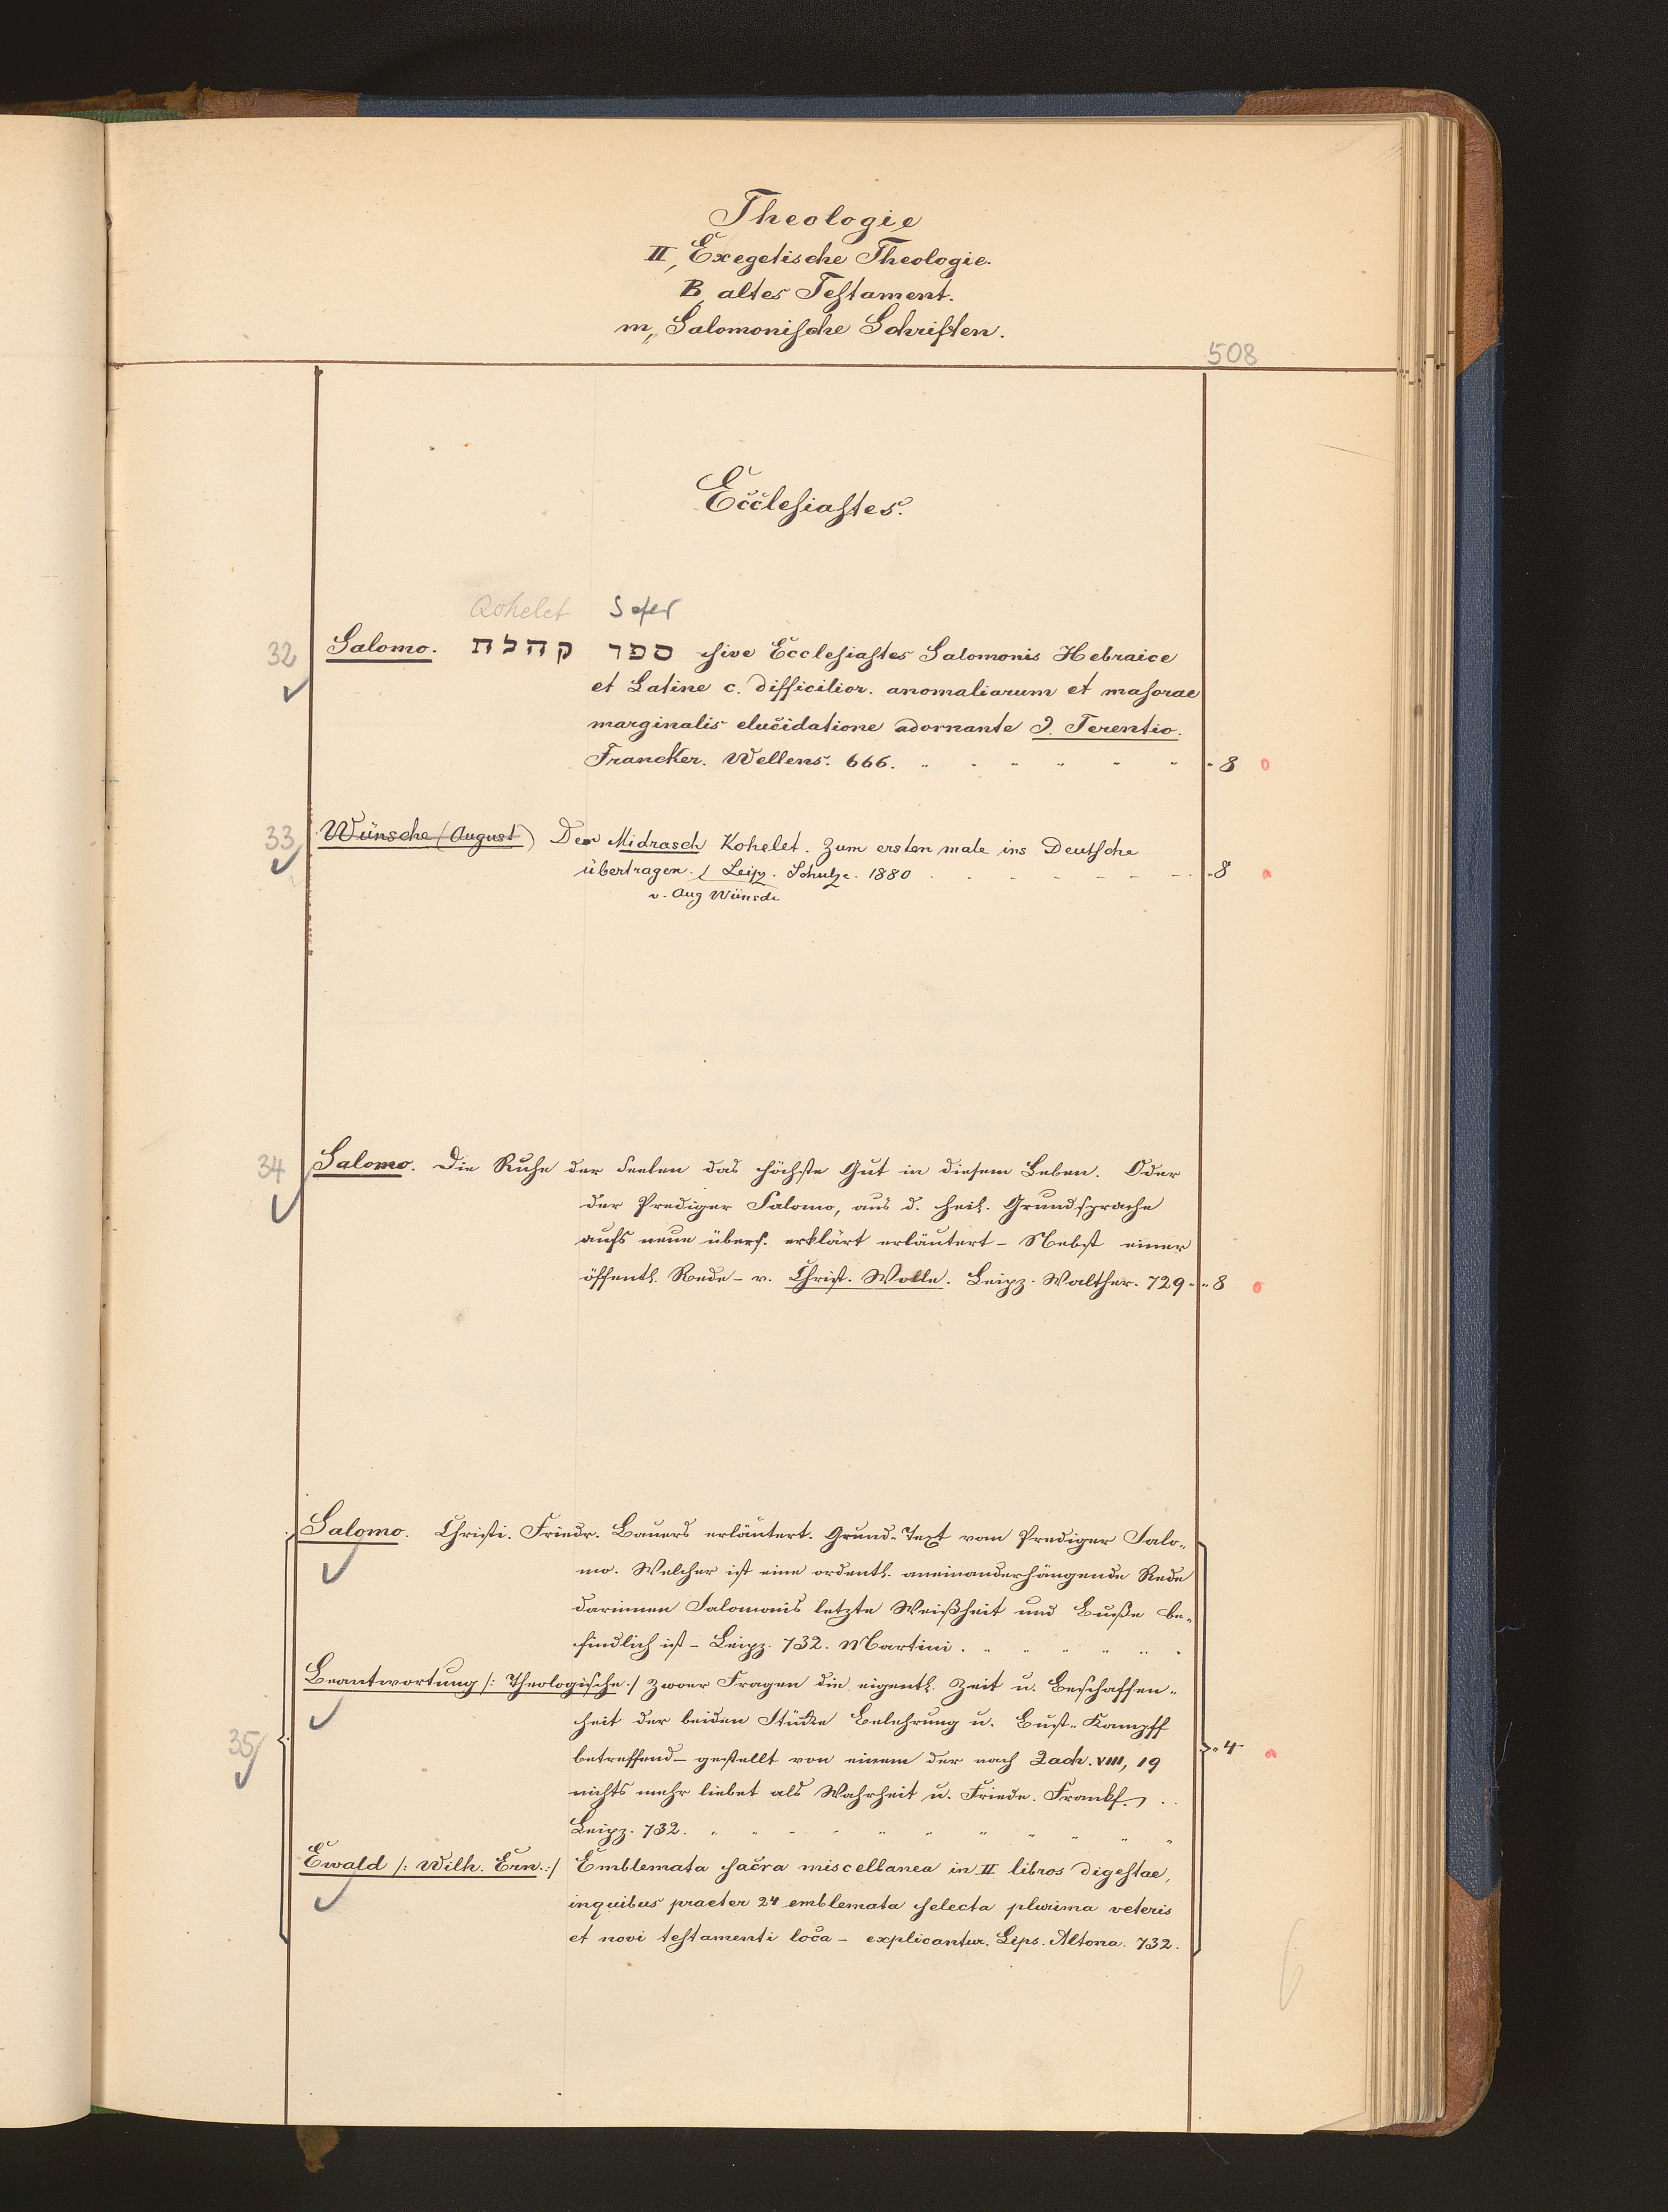 Theologie
II, Exegetische Theologie.
B, altes Testament.
m, Salomonische Schriften.
508
Ecclesiastes.
Qohelet Sefer
32 Salomo. ספר קהלת sive Ecclesiastes Salomonis Hebraice
et Latine c. difficilior. anomaliarum et masorae
marginalis elucidatione adornante J. Terentio.
Francker. Wellens. 666. " " " " " " " 8 o
33 Wünsche (August) Der Midrasch Kohelet. Zum ersten male ins Deutsche
übertragen. / Leipz. Schulze. 1880 . . - - - - - . " 8
v. Aug Wünsche
34 Salomo. Die Ruhe der Seelen das höchste Gut in diesem Leben. Oder
der Prediger Salomo, aus d. heil. Grundsprache
aufs neue übers. erklärt erläutert - Nebst einer
öffentl. Rede - v. Christ. Wolle. Leipz. Walther. 729 " " 8 o
Salomo. Christi. Friedr. Bauers erläutert. Grund-Text vom Prediger Salo-
mo. Welcher ist eine ordentl. aneinanderhängende Rede
darinnen Salomonis letzte Weißheit und Buße be-
findlich ist - Leipz. 732. Martini. " " " " " "
Beantwortung /: Theologische :/ zwoer Fragen die eigentl. Zeit u. Beschaffen-
heit der beiden Stücke Belehrung u. Bust-Kampff
betreffend - gestellt von einem der nach Zach. VIII, 19
35 " 4
nichts mehr liebet als Wahrheit u. Friede. Frankf. . .
Leipz. 732. " " " " " " " " " " "
Ewald /: Wilh. Ern. :/ Emblemata sacra miscellanea in II libros digestae,
inquibus praeter 24 emblemata selecta plurima veteris
et novi testamenti loca - explicantur. Lips. Altona. 732.